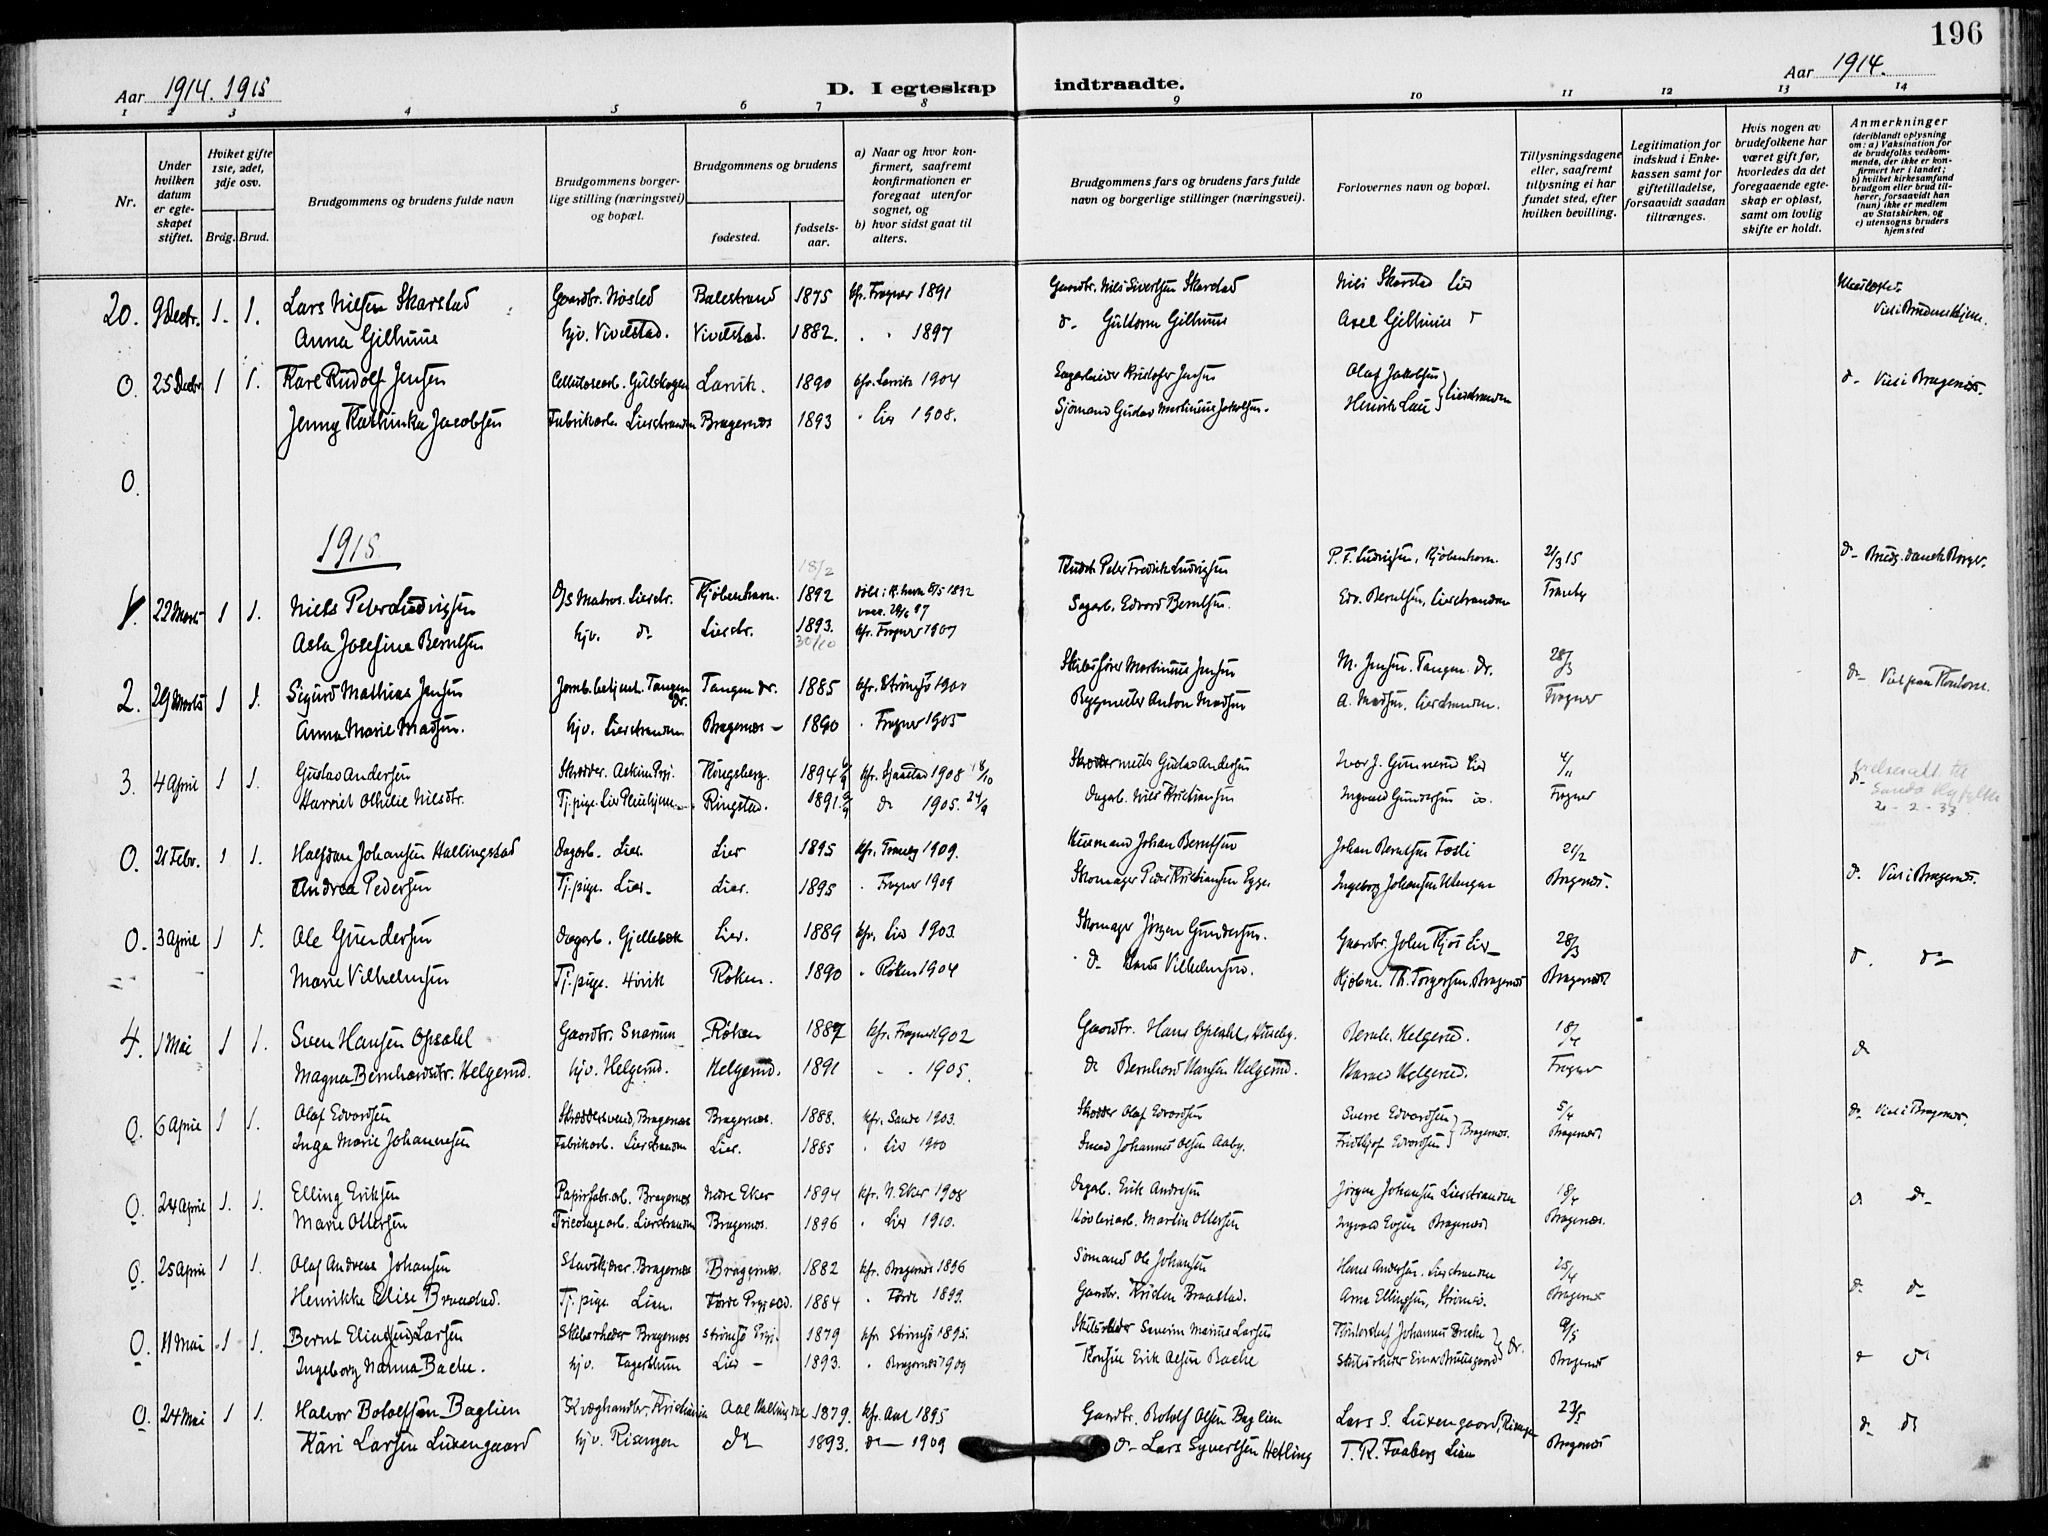 196
Aar 1914. 1915
D. I egteskap indtraadte.
Aar 1914.
1 2 3 4 5 6 7 8 9 10 11 12 13 14
Nr.
Under hvilken datum er egteskapet stiftet.
Hvilket gifte 1ste, 2det, 3dje osv.
Brdg. Brud.
Brudgommens og brudens fulde navn
Brudgommens borgerlige stilling (næringsvei) og bopæl.
Brudgommens og brudens
fødested.
fødselsaar.
a) Naar og hvor konfirmert, saafremt konfirmationen er foregaat utenfor sognet, og
b) hvor sidst gaat til alters.
Brudgommens fars og brudens fars fulde navn og borgerlige stillinger (næringsvei).
Forlovernes navn og bopæl.
Tillysningsdagene eller, saafremt tillysning ei har fundet sted, efter hvilken bevilling.
Legitimation for indskud i Enkekassen samt for giftetilladelse, forsaavidt saadan tiltrænges.
Hvis nogen av brudefolkene har været gift før, hvorledes da det foregaaende egteskap er opløst, samt om lovlig skifte er holdt.
Anmerkninger
(deriblandt oplysning om: a) Vaksination for de brudefolks vedkommende, der ikke er konfirmert her i landet; b) hvilket kirkesamfund brudgom eller brud tilhører, forsaavidt han (hun) ikke er medlem av Statskirken, og c) utensogns bruders hjemsted
20. 9 Decbr. 1. 1. Lars Nilsen Skarstad Gaardbr. Nøsted Balestrand 1875 kfr. Frogner 1891 Gaardbr. Nils Sivertsen Skarstad Nils Skarstad Lier
Anna Gilhuus hjv. Vivelstad. Vivelstad. 1882. " " 1897 d- Guttorm Gilhuus Axel Gilhuus Viet i Brudens hjem.
0. 25 Decbr. 1 1. Karl Rudolf Jensen Cellulosearb. Gulskogen Larvik. 1890 kfr. Larvik 1904 Kristofer Jensen Olaf Jakobsen d- Viet i Bragernæs.
Jenny Kathinka Jacobsen Fabrikarb. Lierstranden Bragernæs 1893 " Lier 1908. Sjømand Gustav Martinius Jakobsen. Henrik Lau } Lierstranden
0.
1915
18/2
1. 22 Marts 1 1. Niels Peter Ludvigsen D/S Matros. Lierstr. Kjøbenhavn. 1892 døbt i K.havn 8/5 1892 Peter Fredrik Ludvigsen P. F. Ludvigsen, Kjøbenhavn. 21/3 15 d- Brudg. dansk Borger.
Asta Josefine Berntsen hjv. d- Lierstr. 1893. kfr. Frogner 1907 Sagarb. Edvard Berntsen. Edv. Berntsen, Lierstranden Tranby
30/10
2. 29 Marts 1 1. Sigurd Mathias Jensen Jernb.betjent. Tangen Dr. Tangen Dr. 1885 kfr. Strømsø 1900 Skibsfører Martinius Jensen M. Jensen. Tangen. Dr. 28/3 d-
Anna Marie Madsen. hjv. Lierstranden Bragernæs - 1890 " Frogner 1905 Bygmester Anton Madsen A. Madsen, Lierstranden. Frogner
3. 4 April 1 1. Gustav Andersen Skrædder. Askim Prgj. Kongsberg. 1894 kfr. 1908 18/10 Gustav Andersen Ivar J. Gunnerud Lier 4/
Harriet Othilie Nilsdtr. Tj.pige. Lier Pleiehjem Ringstad. 1891. d- 1905. 24/9 Dagarb. Nils Kristiansen Ingvald Gundersen do. Frogner 21-2-33
0. 21 Febr. 1 1. Halfdan Johansen Hallingstad Dagarb. Lier. Lier 1895 kfr. Tranby 1909. Husmand Johan Berntsen Johan Berntsen Fosli 21/2 d. Viet i Bragernæs.
Andrea Pedersen Tj.pige. Lier. Lier. 1895 " Frogner 1909 Skomager Peder Kristiansen Egge. Ingeborg Johansen Bragernæs.
0. 3 April 1 1. Ole Gundersen Dagarb. Gjellebæk Lier. 1889 kfr. Lier 1903. Skomager Jørgen Gundersen. Gaardbr. Johan Kjøs Lier 28/3 d. d-
Marie Vilhelmsen Tj.pige. Høvik Røken. 1890 " Røken 1904 d- Hans Vilhelmsen. Kjøbm. Th. Torgersen. Bragernæs Bragernæs
4. 1 Mai 1 1. Sven Hansen Opsahl Gaardbr. Snarum Røken 1887 kfr. Frogner 1902 Gaardbr. Hans Opsahl, Huseby. Bernh. Helgerud. 18/4 d-
Magna Bernhardsdtr. Helgerud. hjv. Helgerud. Helgerud. 1891 " " 1905. d- Bernhard Hansen Helgerud. Harald Helgerud. Frogner
0. 6 April 1 1. Olaf Edvardsen Skræddersvend, Bragernæs Bragernæs. 1888. kfr. Sande 1903. Skrædder Olaf Edvardsen Sverre Edvardsen 5/4 d- Viet i Bragernæs.
Inga Marie Johannesen Fabrikarb. Lierstranden Lier. 1885 " Lier 1900 Smed Johannes Olsen Aaby. Fridthjof Edvardsen } Bragernæs. Bragernæs
0. 24 April 1. 1. Elling Eriksen Papirfabr.arb. Bragernæs Nedre Eker 1894 kfr. N. Eker 1908 Dagarb. Erik Andresen Jørgen Johansen Lierstranden 18/4 d d-
Marie Ottersen Tricotagearb. Lierstranden Bragernæs. 1896 " Lier 1910. Høvleriarb. Martin Ottersen Ingvald Bragernæs Bragernæs.
0. 25 April 1 1. Olaf Andreas Johansen Bragernæs Bragernæs. 1882 kfr. Bragernæs 1896 Sømand Ole Johansen Hans Andersen. Lierstranden 25/4 d- d-
Henrikke Elise Braastad. Tj.pige Lien. Førde Prgj. 1884 " Førde 1899. Gaardbr. Kristen Braastad. Arne Ellingsen, Strømsø. Bragernæs
0. 11 Mai 1 1. Bernt Elias(sen) Larsen Skibsrheder Bragernæs Strømsø Prgj. 1879 kfr Strømsø 1895. Skibsrheder Severin Marius Larsen Johannes 9/5
Ingeborg Nanna Bache. hjv. Fagertun Lier - 1893. " Bragernæs 1909 Konsul Erik Olsen Bache Skibsrheder Einar } Dr. Bragernæs
0. 24 Mai 1 1. Halvor Botolfsen Baglien Kvæghandler, Kristiania Aal Hallingdal 1879. kfr. Aal 1895 Gaardbr. Botolf Olsen Baglien Lars S. Luxengaard, Risengen 23/5 d- d-
Kari Larsen Luxengaard hjv. Risengen d- 1893. d- 1909 d- Lars Syvertsen Hetling T. R. Faaberg Lien Bragernæs